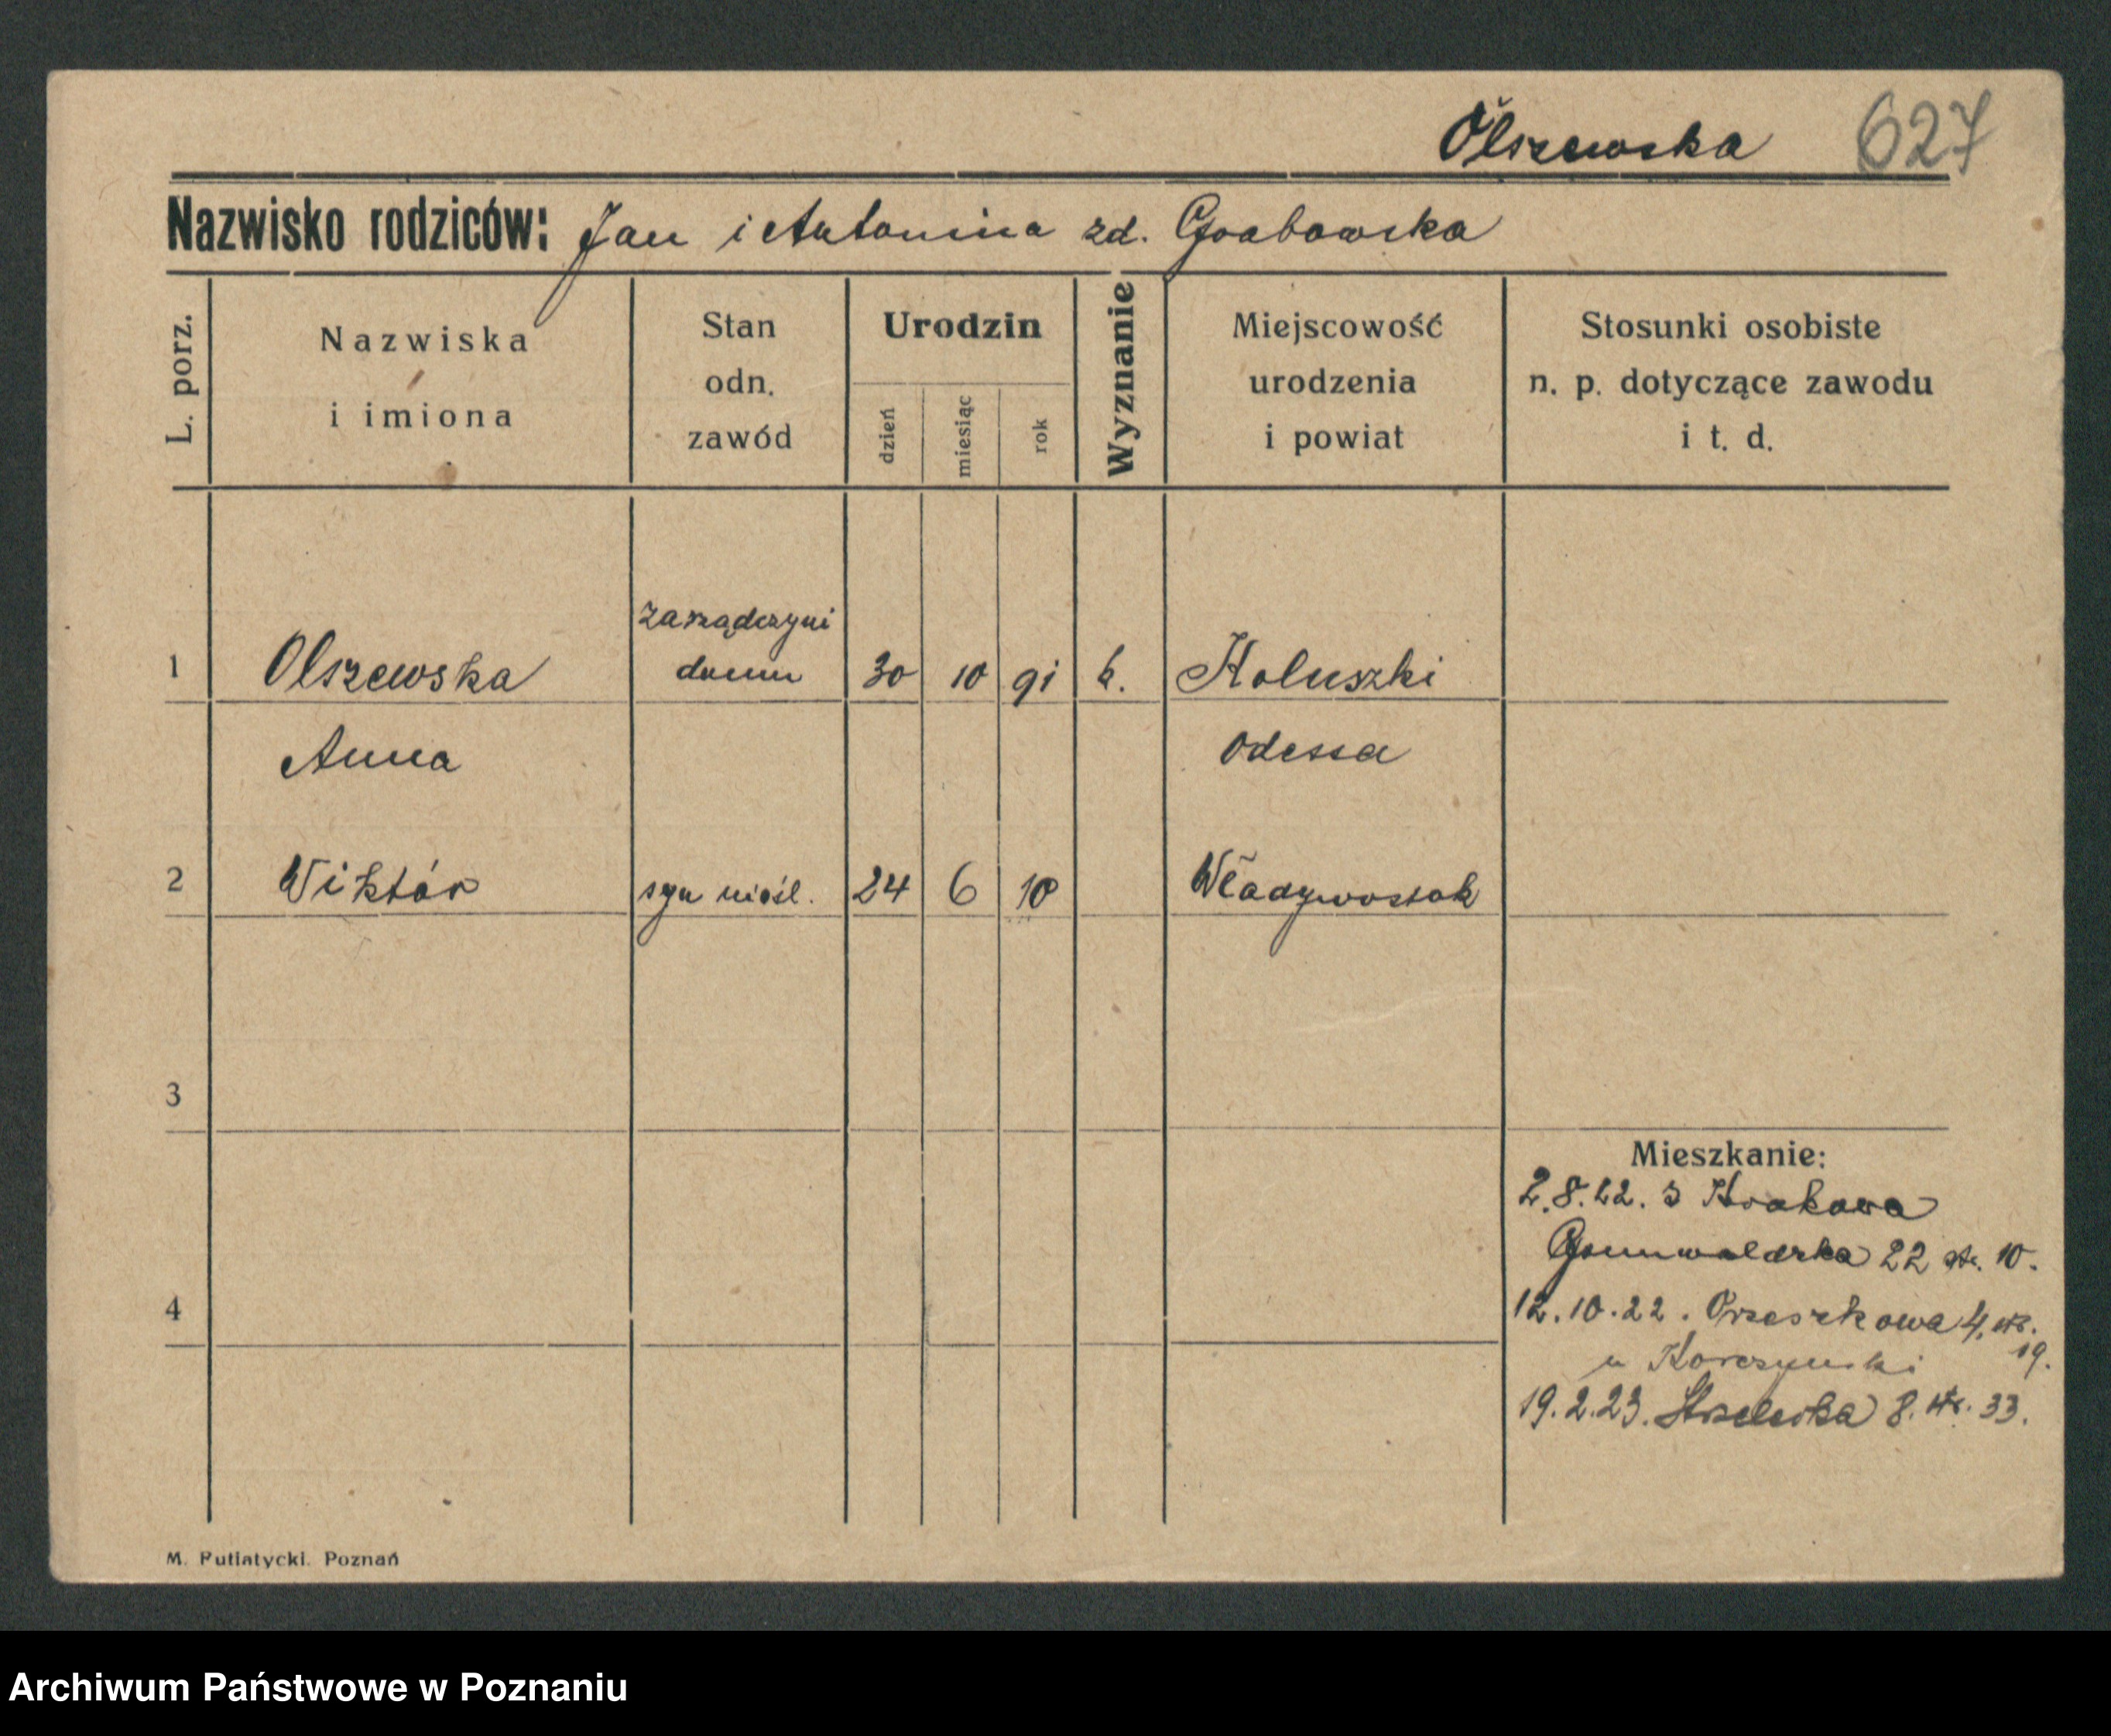 Olszewska 627
Nazwisko rodziców: Jan i Antonina zd. Grabowska
L. porz.
Nazwiska
i imiona
Stan
odn.
zawód
Urodzin
dzień
miesiąc
rok
Wyznanie
Miejscowość
urodzenia
i powiat
Stosunki osobiste
n. p. dotyczące zawodu
i t. d.
zarządczyni
1 Olszewska domu 30 10 91 k. Koluszki
Anna Odessa
2 Wiktór syn nieśl. 24 6 10 Władywostok
3
Mieszkanie:
2.8.22. z Krakowa
Grunwaldzka 22 ptr. 10.
4
12.10.22. Orzeszkowa 4, ptr.
19.
u Korczynski
19.2.23. Strzelecka 8. ptr. 33.
M. Putiatycki. Poznań
Archiwum Państwowe w Poznaniu